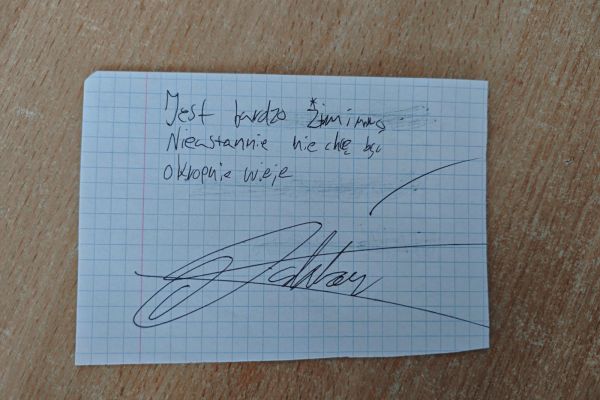 Jest bardzo
Nieustannie nie chcę być
okropnie wieje